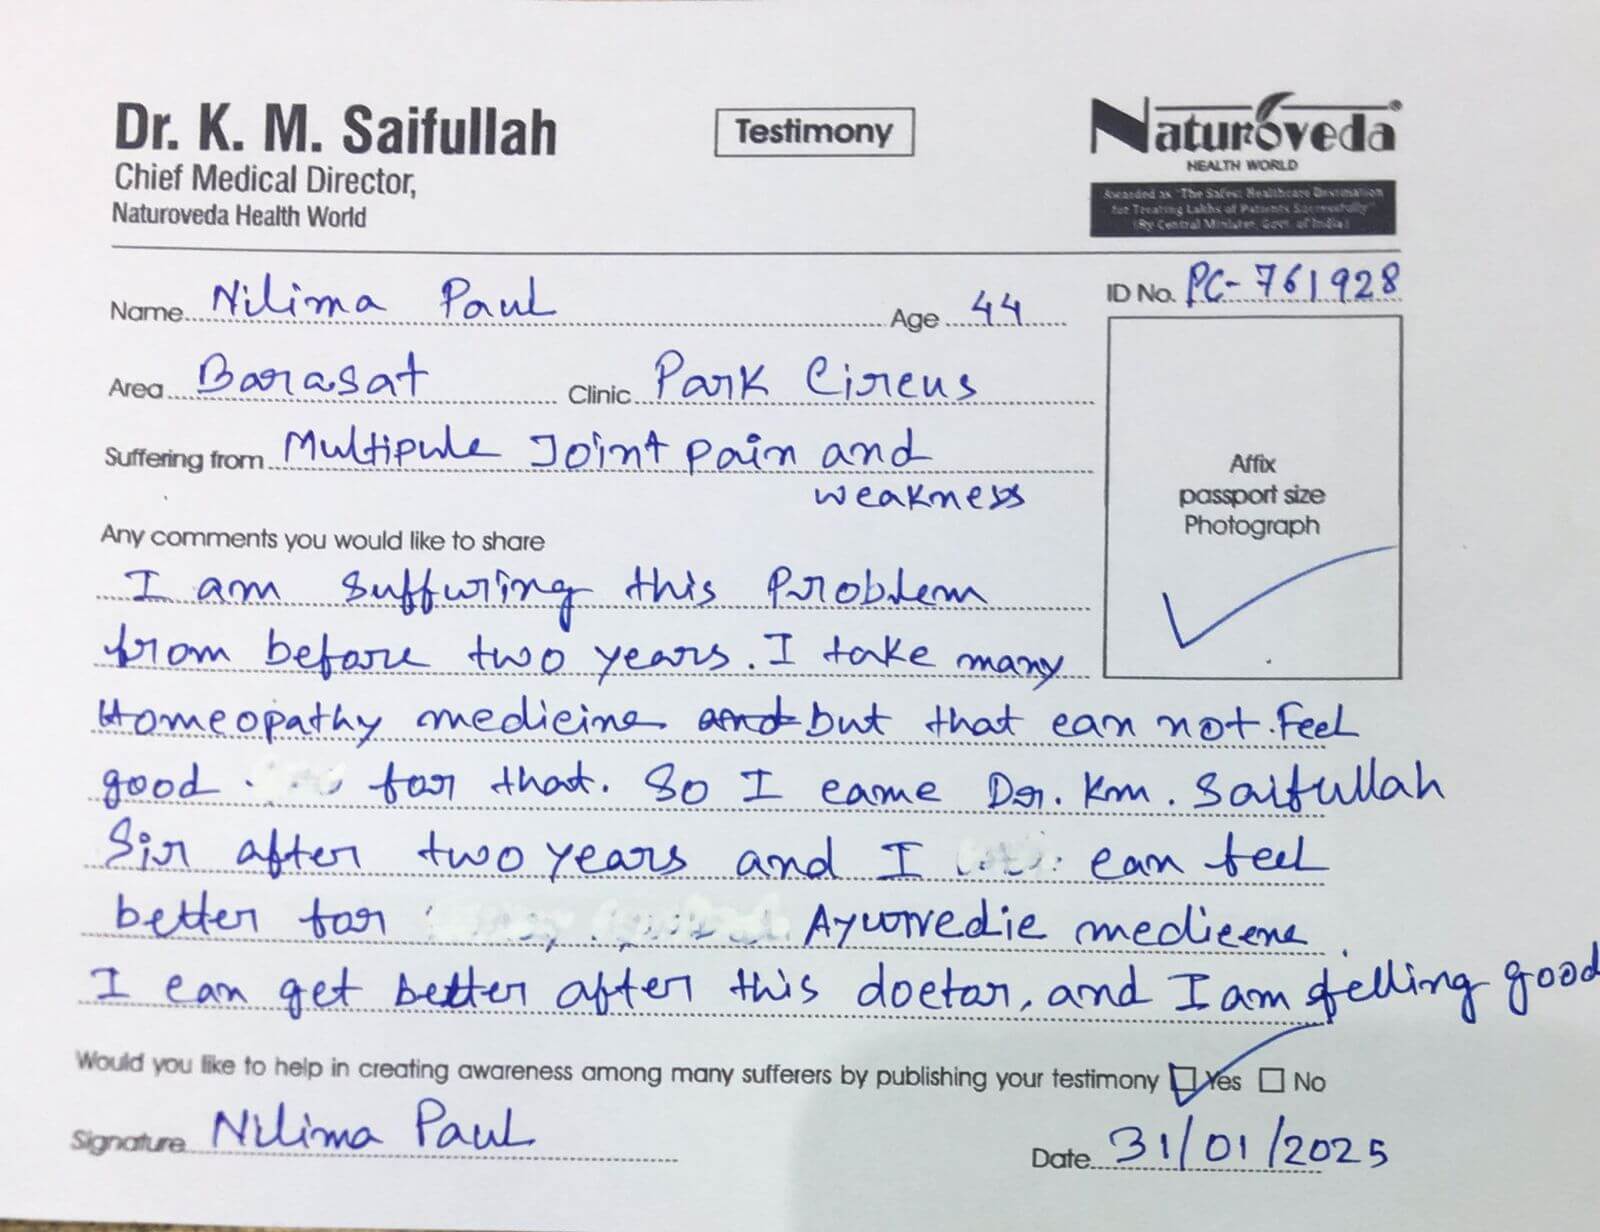 Dr. K. M. Saifullah
Chief Medical Director,
Naturoveda Health World
Testimony
Naturoveda®
HEALTH WORLD
Awarded as "The Safest Healthcare Destination
for Treating Lakhs of Patients Successfully"
(By Central Minister, Govt. of India)
Name Nilima Paul Age 44 ID No. PC-761928
Area Barasat Clinic Park Circus
Suffering from Multipule Joint pain and
weakness
Affix
passport size
Photograph
Any comments you would like to share
I am suffuring this Problem
from before two years. I take many
Homeopathy medicine and but that can not. Feel
good for that. So I came Dr. Km. Saifullah
Sir after two years and I can feel
better for Ayurvedic mediceene.
I can get better after this doctor, and I am felling good
Would you like to help in creating awareness among many sufferers by publishing your testimony Yes No
Signature Nilima Paul Date 31/01/2025